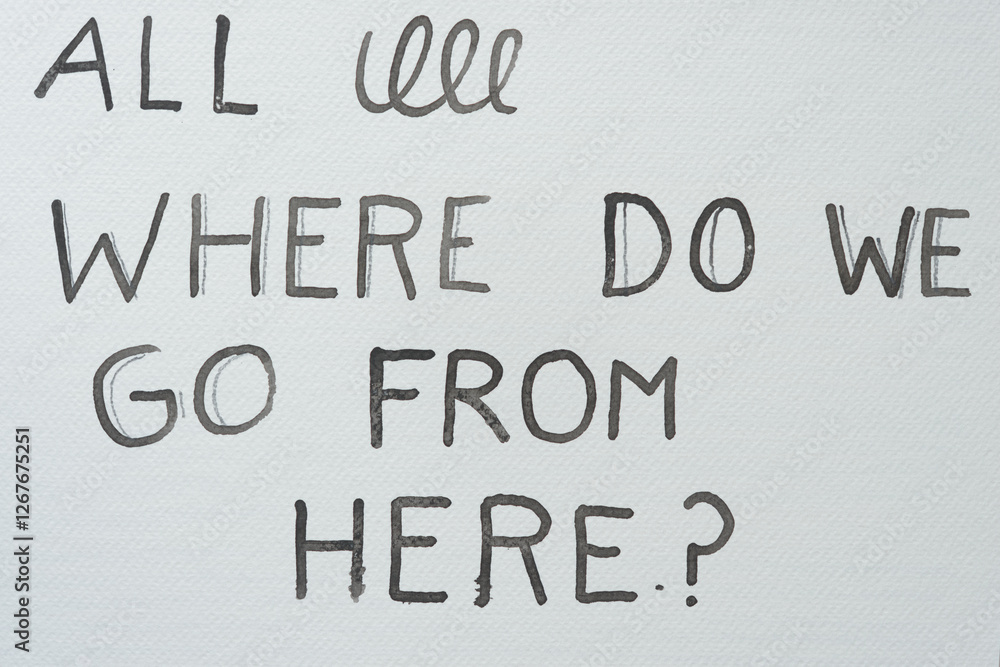 ALL
WHERE DO WE
GO FROM
HERE?
Adobe Stock | #1267675251